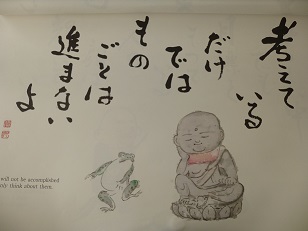 考えて
いる
だけ
では
もの
ごとは
進まない
よ
will not be accomplished
only think about them.